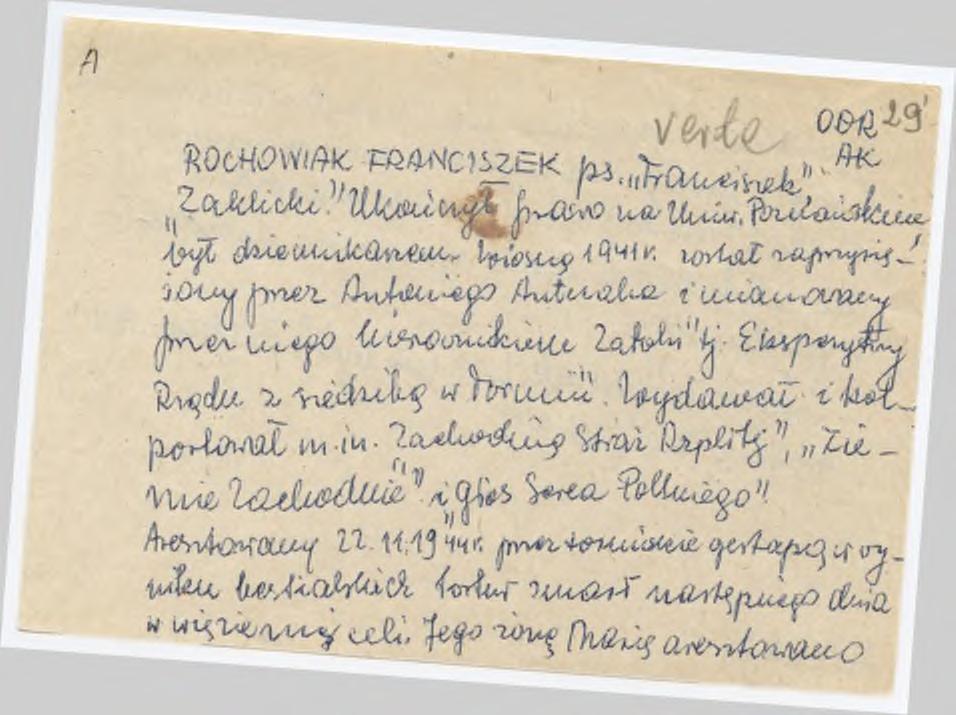 A
verte OOR 29'
AK
ROCHOWIAK FRANCISZEK ps. „Franciszek"
„Zaklicki." Ukończył prawo na Uniw. Poznańskim
był dziennikarzem. Wiosną 1941r. został zaprzysię-
żony przez Antoniego Antczaka i mianowany
przez niego kierownikiem „Zatoki" tj. Ekspozytury
Rządu z siedzibą w Toruniu. Wydawał i kol-
portował m.in. „Zachodnią Straż Rzplitej", „Zie-
mie Zachodnie" i „Głos Serca Polskiego".
Aresztowany 22.11.1944r. przez toruńskie gestapo, w wy-
niku bestialskich tortur zmarł następnego dnia
w więziennej celi. Jego żonę Marię aresztowano